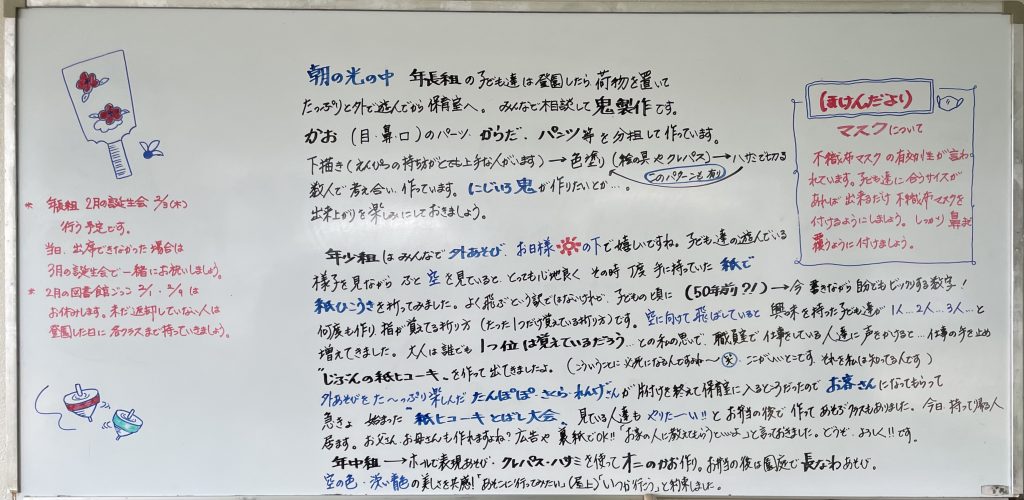 朝の光の中 年長組の子ども達は登園したら荷物を置いて
たっぷりと外で遊んでから保育室へ。みんなで相談して鬼製作です。
かお(目・鼻・口)のパーツ からだ、パンツ等を分担して作っています。
下描き(えんぴつの持ち方がとても上手な人がいます)→色塗り(絵の具やクレパス)→ハサミで切る
このパターンも有り
数人で考え合い、作っています。にじいろ鬼が作りたいとか…。
出来上がりを楽しみにしておきましょう。
年少組はみんなで外あそび、お日様の下で嬉しいですね。子ども達の遊んでいる
様子を見ながら ふと空を見ていると とっても心地良く その時 丁度 手に持っていた 紙で
紙ひこうきを折ってみました。よく飛ぶという訳ではないけれど、子どもの頃に(50年前?!)→今 書きながら自分でもビックリする数字!
何度も作り 指が覚えてる折り方(たった1つだけ覚えている折り方)です。空に向けて飛ばしていると 興味を持った子ども達が 1人…2人…3人…と
増えてきました。大人は誰でも 1つ位は覚えているだろう…との私の思いで、職員室で仕事をしている人達に声をかけると…仕事の手を止め
"じぶんの紙ヒコーキ"を作って出てきましたよ。(こういうことに必死になるんですよね〜笑 ここがいいとこです。それを私は知ってる人です)
外あそびをた〜っぷり楽しんだ たんぽぽ・さくら・れんげさんが片付けを終えて保育室に入るところだったので お客さんになってもらって
急きょ 始まった "紙ヒコーキとばし大会、見ている人達も やりたーい!!とお弁当の後で作って あそぶクラスもありました。今日、持って帰る人
居ます。お父さん、お母さんも作れますよね?広告や裏紙でOK!!「お家の人に教えてもらうといいよ」と言っておきました。どうぞ、よろしく!!です。
年中組→ホールで表現あそび・クレパス・ハサミを使ってオニのかお作り。お弁当の後は園庭で長なわあそび。
空の色・淡い青色の美しさを共感!「あそこに行ってみたい」(屋上)「いつか行こう」と約束しました。
* 年長組 2月の誕生会 2/3(木)
行う予定です。
当日、出席できなかった場合は
3月の誕生会で一緒にお祝いしましょう。
* 2月の図書館ごっこ 2/1・2/9は
お休みします。まだ返却していない人は
登園した日に各クラスまで持っていきましょう。
(ほけんだより)
マスクについて
不織布マスクの有効性が言わ
れています。子ども達に合うサイズが
あれば 出来るだけ 不織布マスクを
付けるようにしましょう。しっかり 鼻まで
覆うように付けましょう。